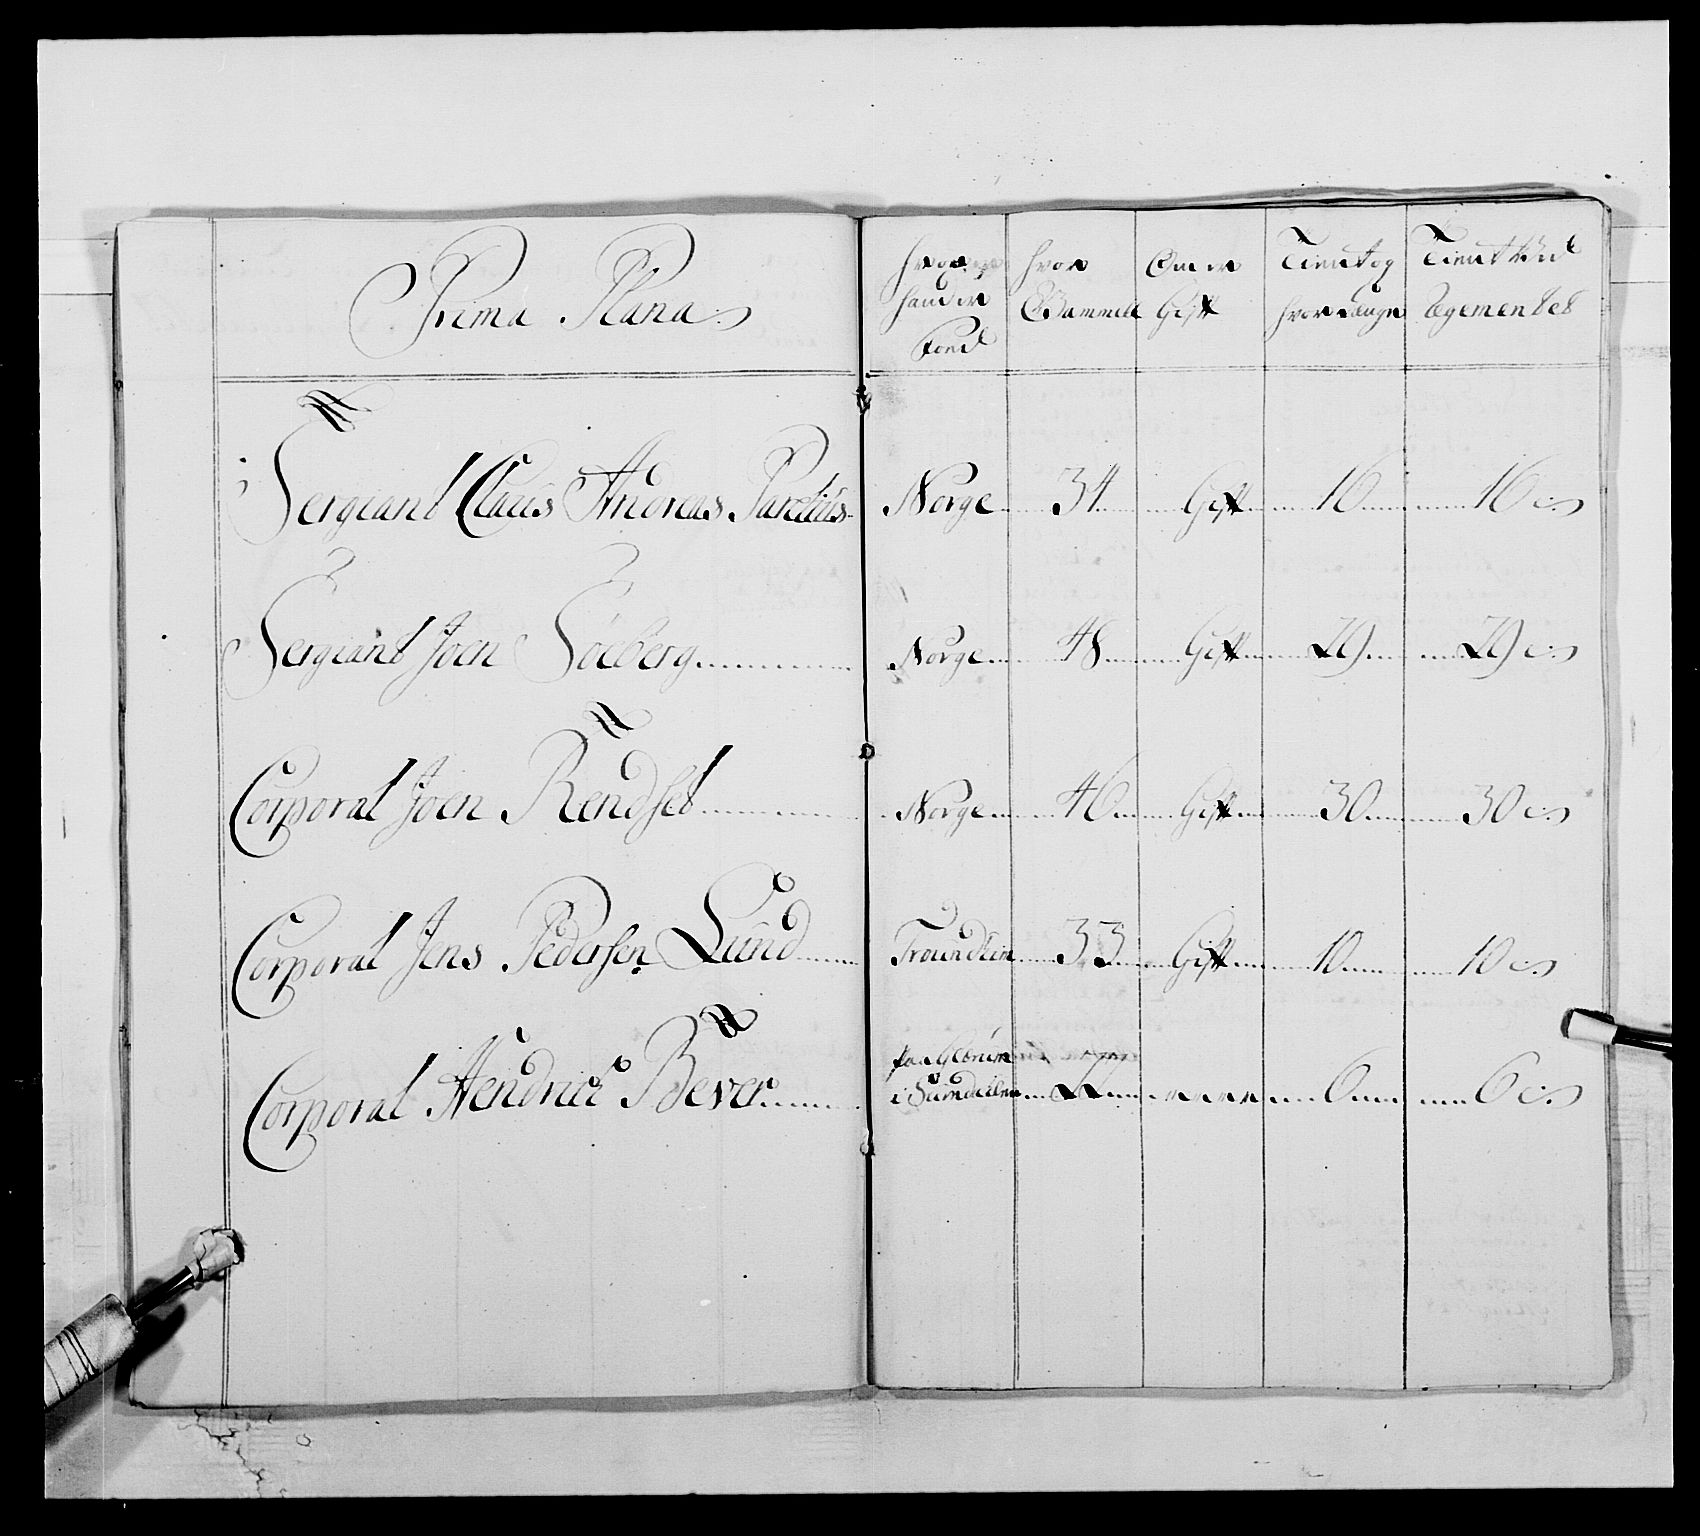 Prima Plana
hvor hand er Fœd
hvor Gammell
Om er Gift
Tient og hvor længe
Tient ved Regementet
Sergiant Claus Andreas Parelius Norge 34 Gift 16 16
Sergiant Joen Soeberg Norge 48 Gift 29 29
Corporal Joen Rendset Norge 46 Gift 30 30
Corporal Jens Pedersen Lund Troundhiem 33 Gift 10 10
Corporal Hendrich Bever i Surendallen 22 6 6